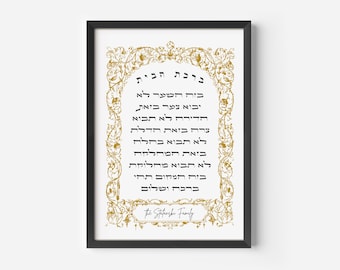 ברכת הבית
בזה השער לא
יבוא צער בזאת
הדירה לא תבוא
צרה בזאת הדלת
לא תבוא בהלה
בזאת המחלקה
לא תבוא מחלוקת
בזה המקום תהי
ברכה ושלום
the Family